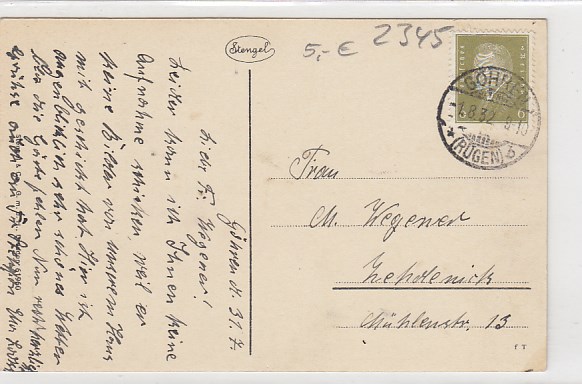 Stengel
5,- € 2345
GÖHREN
(RÜGEN)
Göhren d. 31.7.
Lieber Fr. Wegener!
Leider kann ich Ihnen keine
Aufnahme schicken, weil er
keine Bilder von unserem Haus
mit geschickt hat. Hier ist
augenblicklich sehr schönes Wetter
die fehlen. Nun recht herzliche
Grüße auch an
Frau
M. Wegener
Zehdenick
Mühlenstr. 13